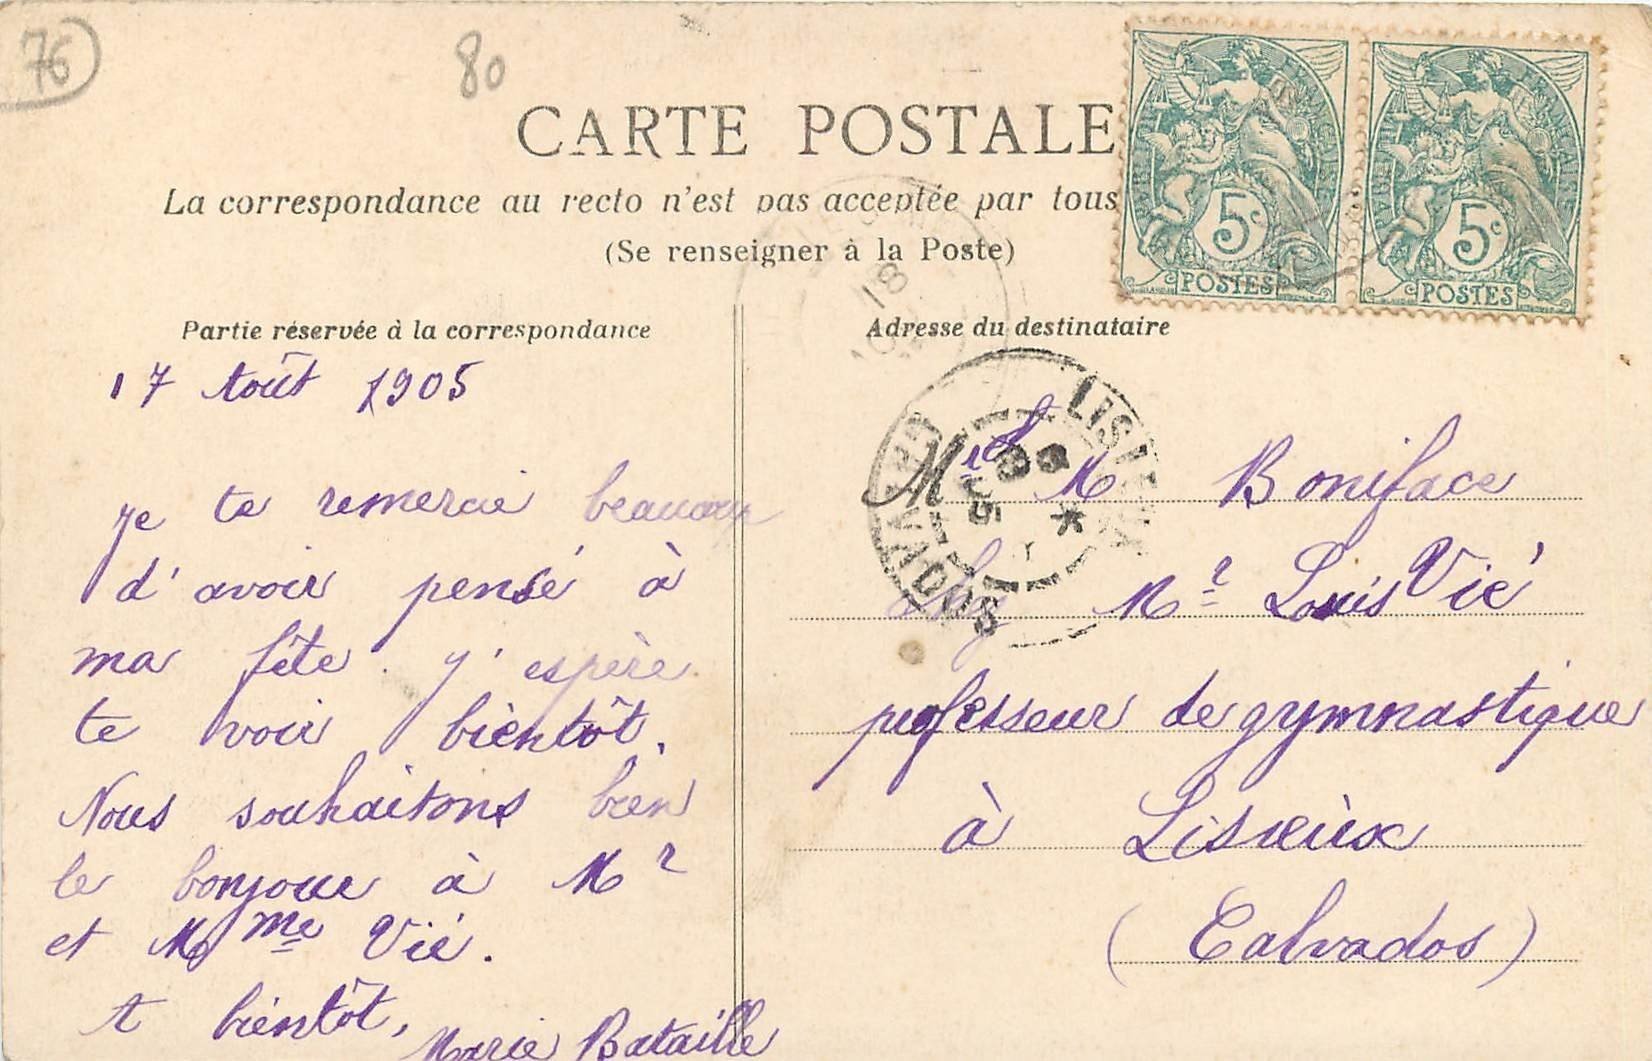 76
80
CARTE POSTALE
La correspondance au recto n'est pas acceptée par tous
(Se renseigner à la Poste)
RÉPUBLIQUE FRANÇAISE
5c
POSTES
RÉPUBLIQUE FRANÇAISE
5c
POSTES
Partie réservée à la correspondance
17 Août 1905
Je te remercie beaucoup
d'avoir pensé à
ma fête. J'espère
te voir bientôt.
Nous souhaitons bien
le bonjour à Mr
et Mme Vié.
A bientôt,
Marie Bataille
Adresse du destinataire
18
LISIEUX
CALVADOS
M Boniface
Chez Mr Louis Vié
professeur de gymnastique
à Lisieux
(Calvados)